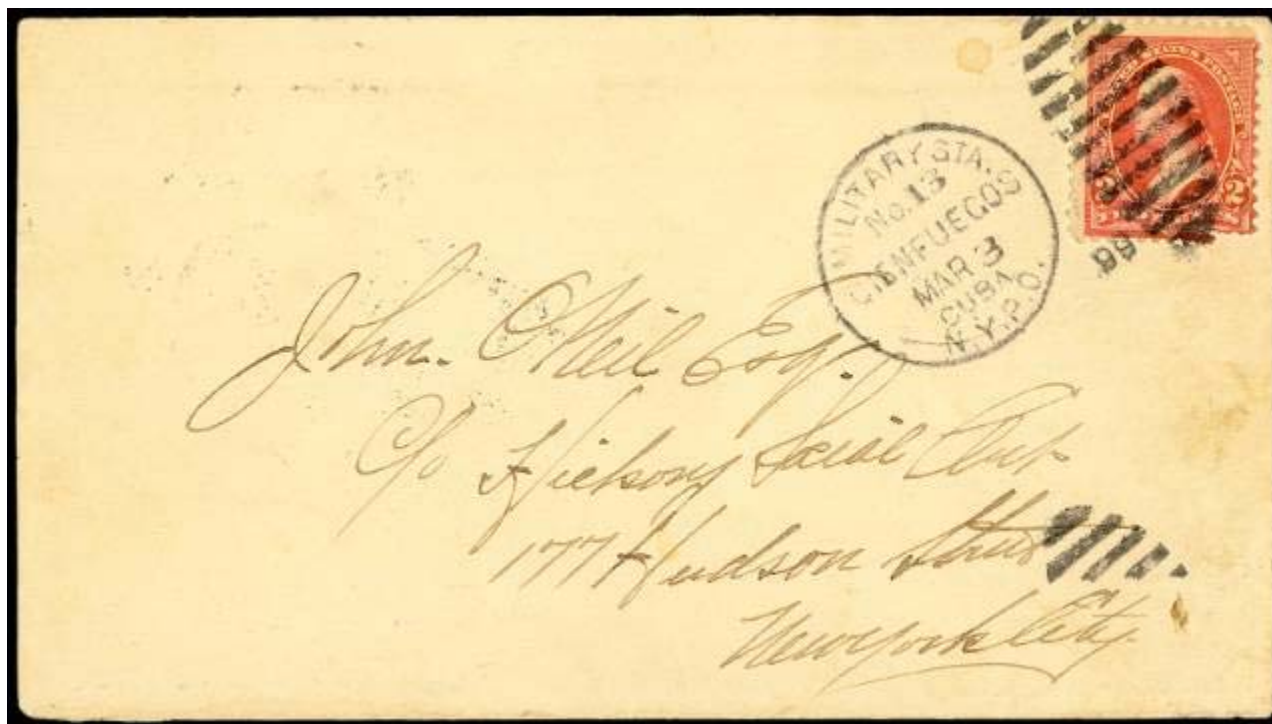 MILITARY STA.
No. 13
CIENFUEGOS
MAR 3
CUBA
N.Y.P.O.
99
2
John. O'Neil Esq.
C/o Hickory Social Club
177 Hudson Street
New York City.